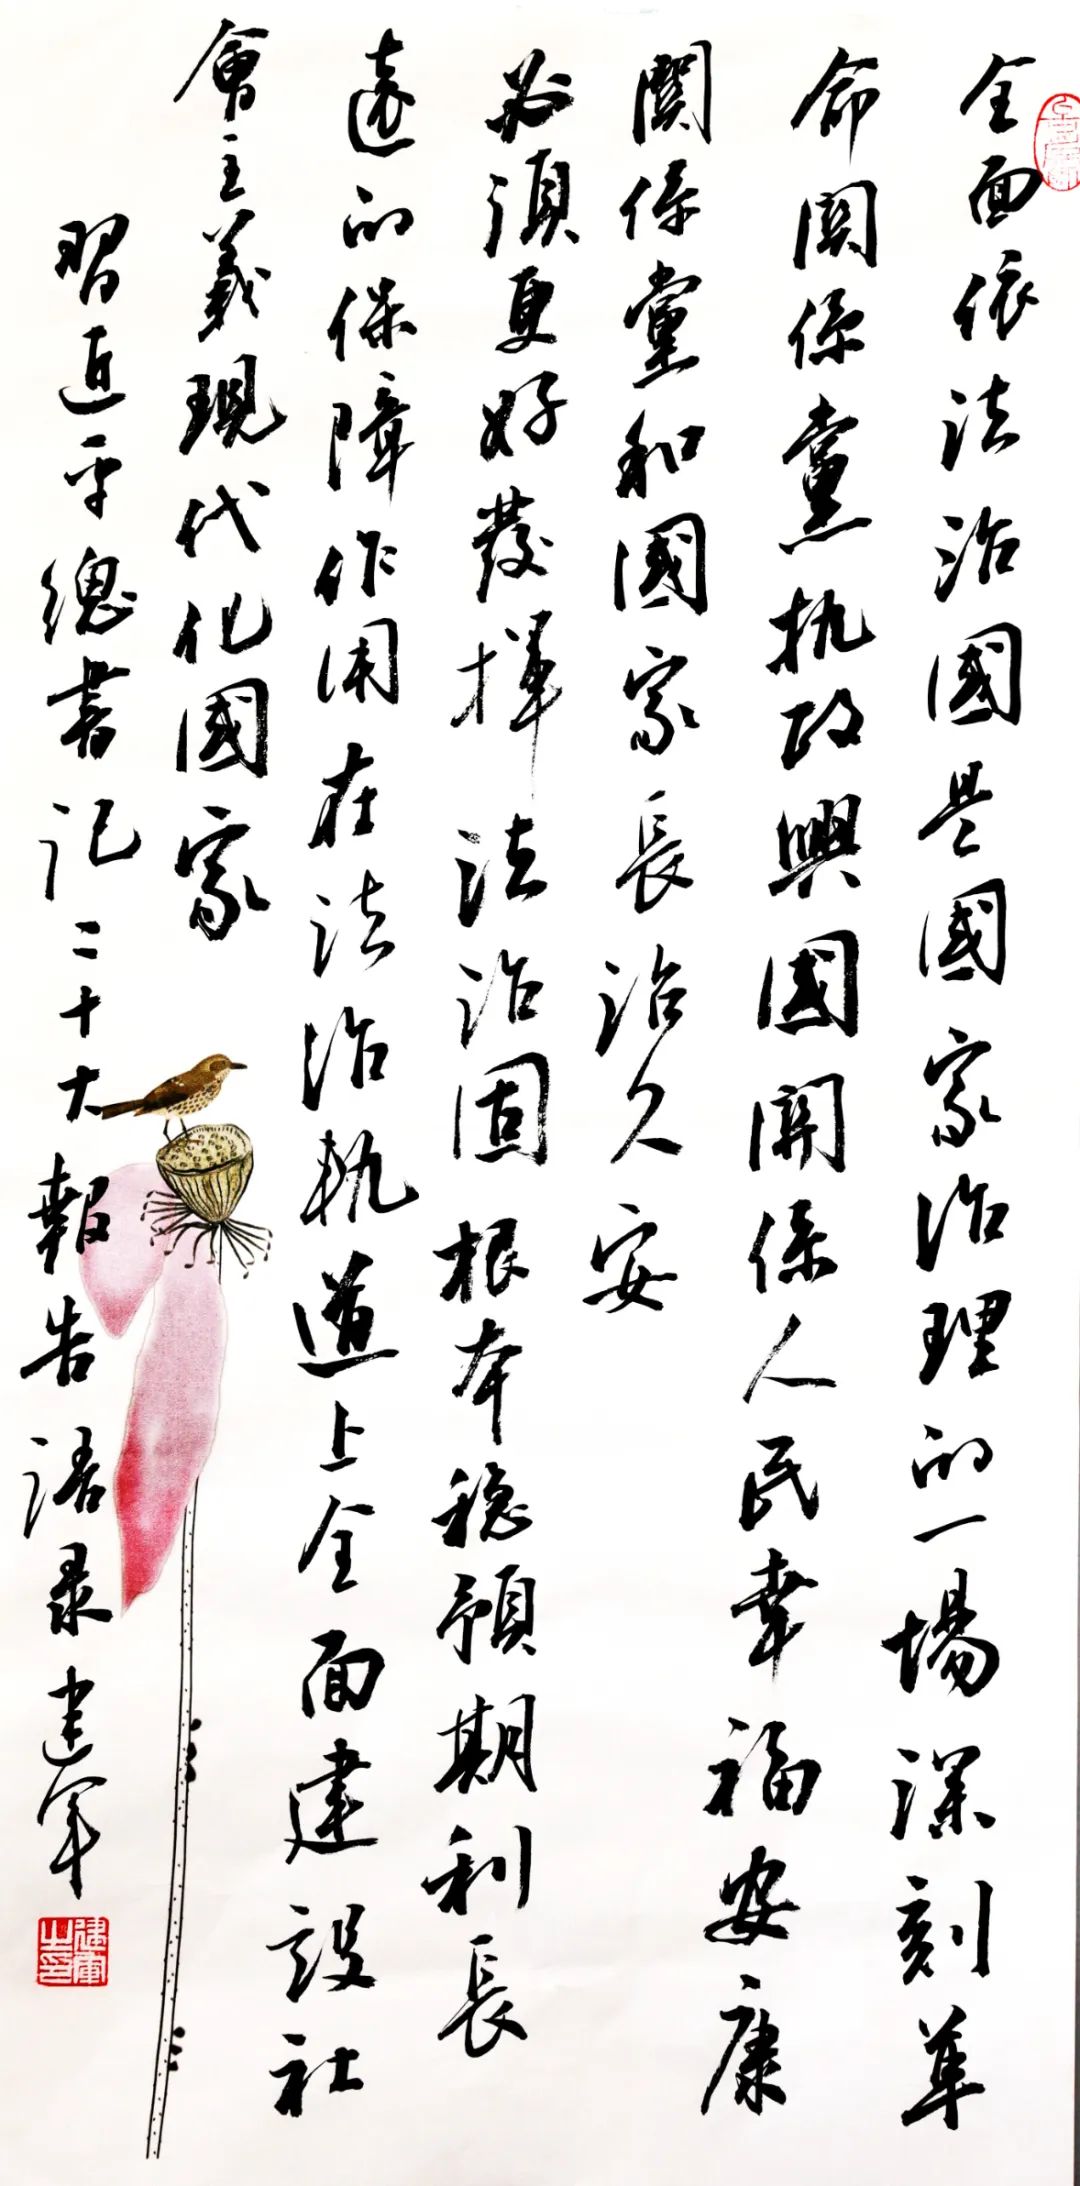 全面依法治國是國家治理的一場深刻革
命關係黨執政興國關係人民幸福安康
關係黨和國家長治久安
必須更好發揮法治固根本穩預期利長
遠的保障作用在法治軌道上全面建設社
會主義現代化國家
習近平總書記二十大報告语录建军
建軍之印